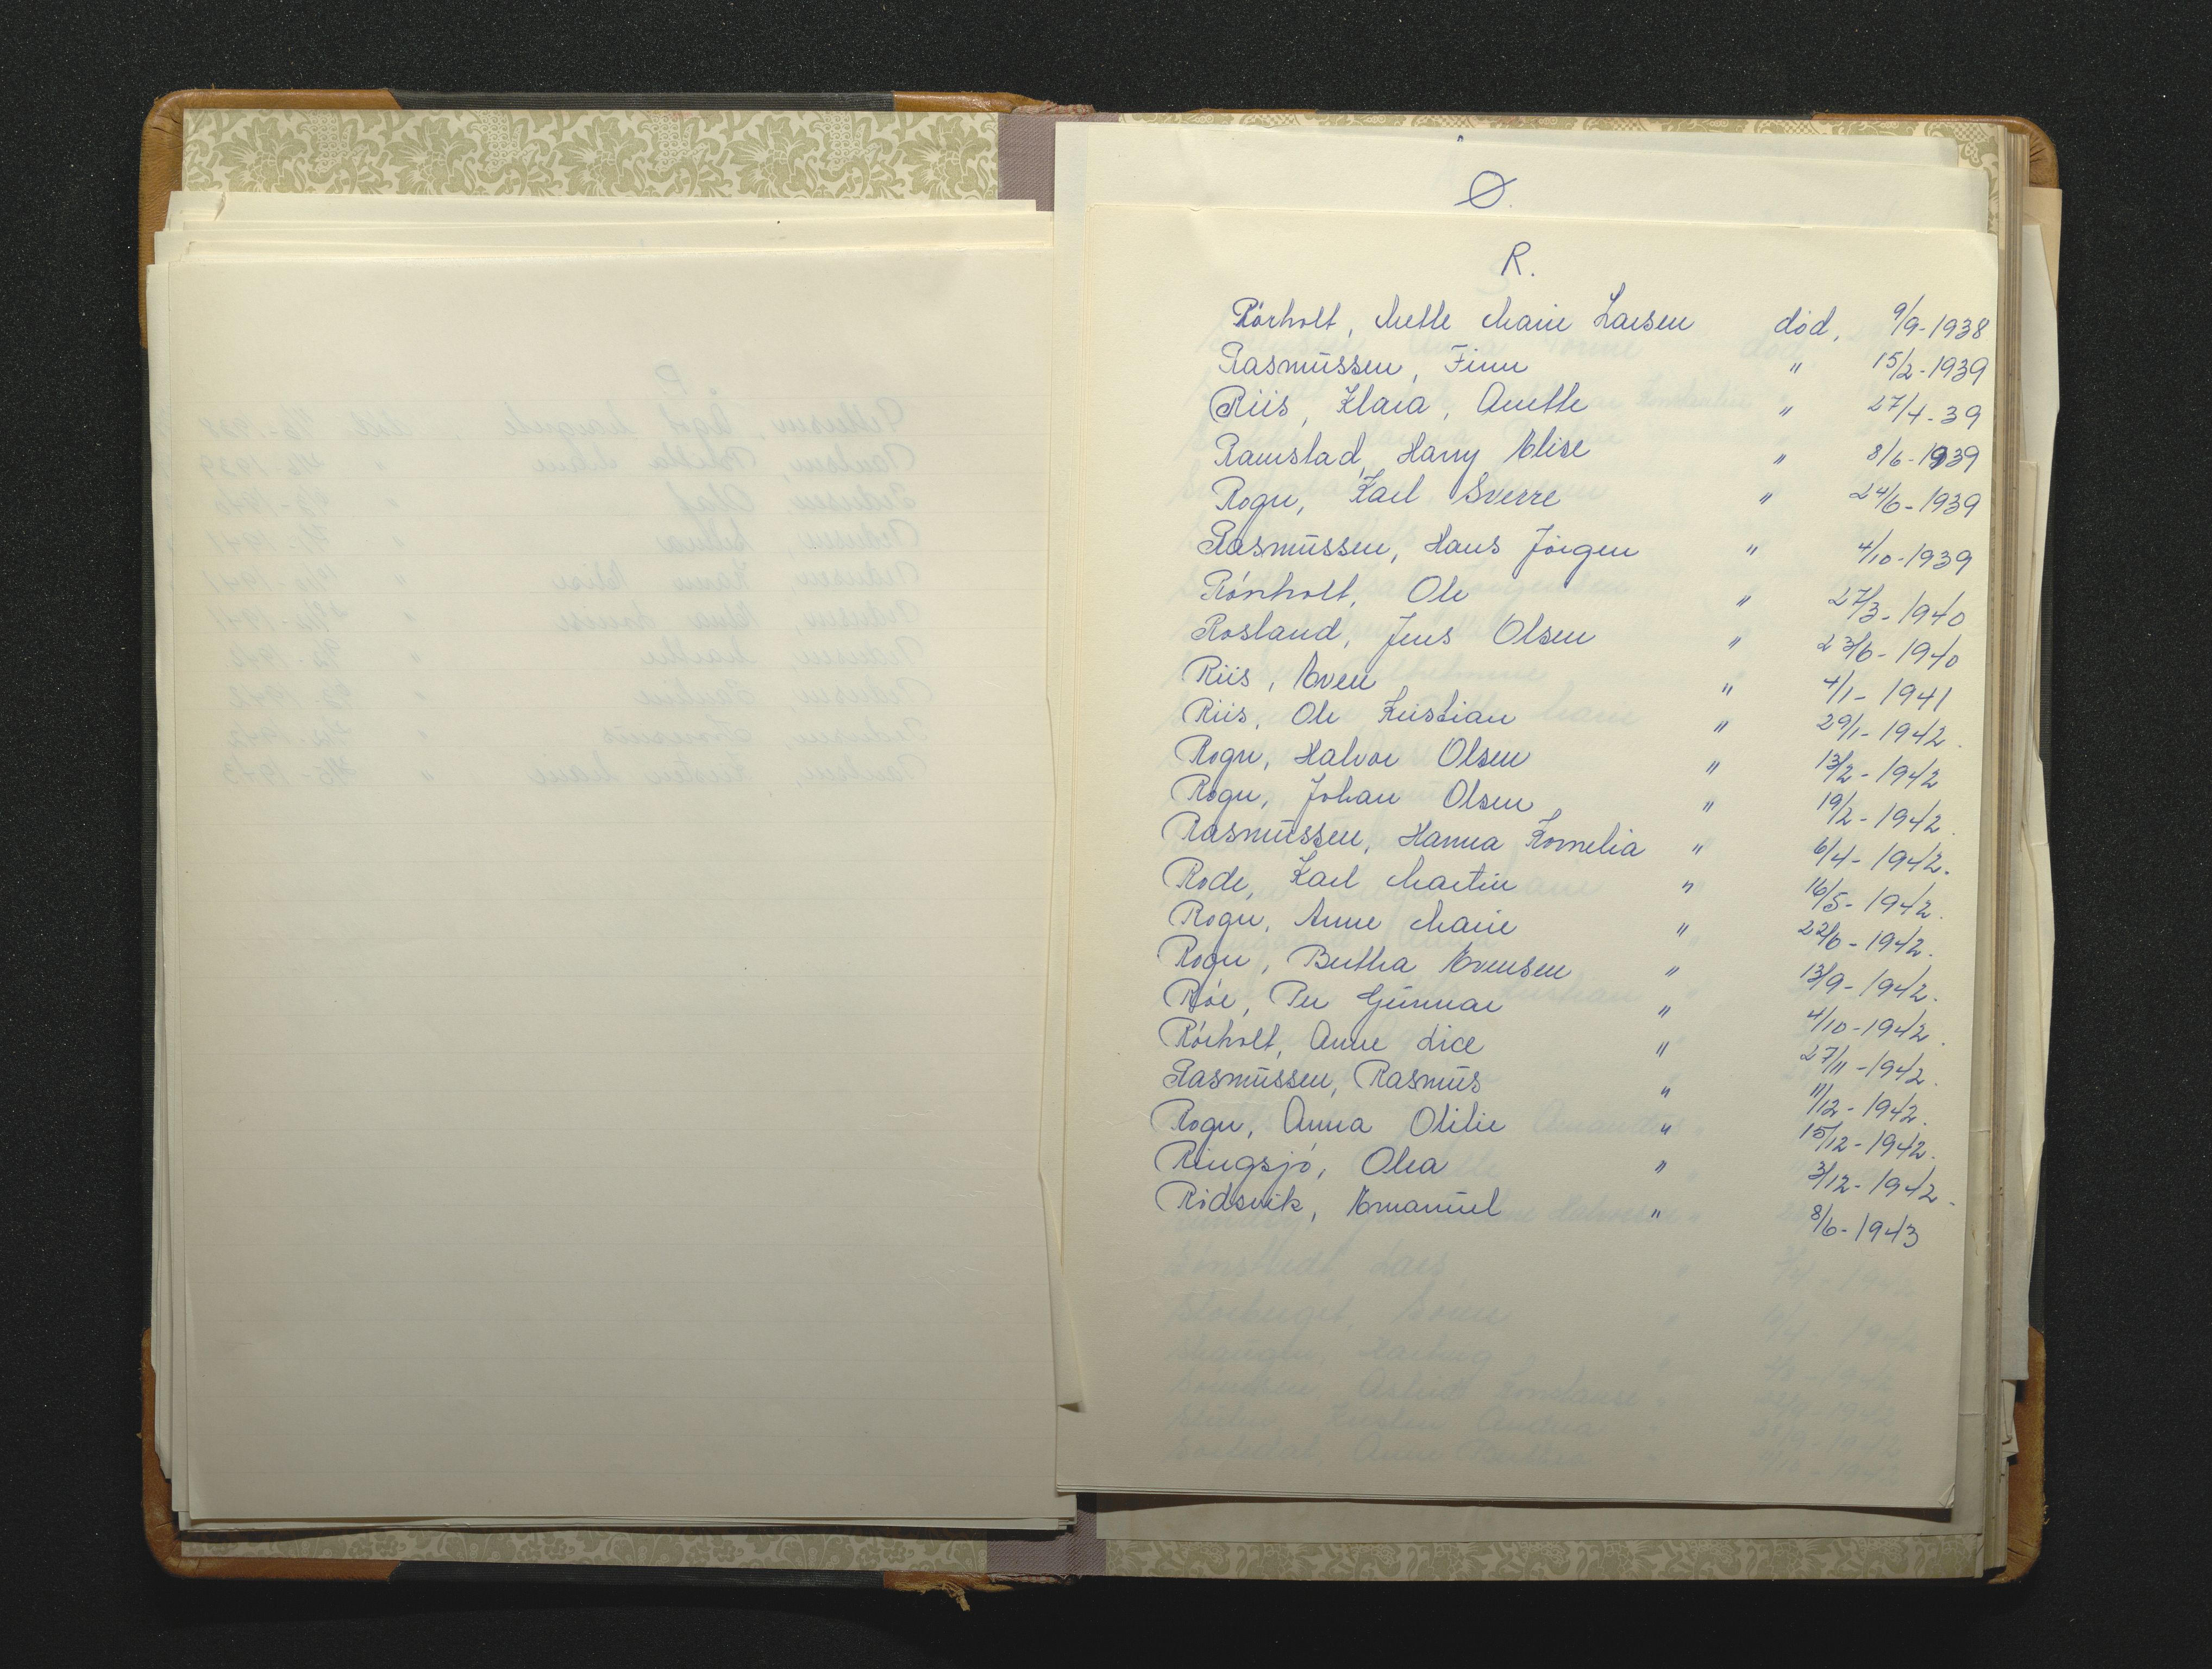 Ø.
R.
Rörholt, Mette Marie Larsen død, 9/9-1938
Rasmussen, Finn " 15/2-1939
Riis, Klara, Anette " 27/4-39
Ramstad, Harry Elise " 8/6-1939
Rogn, Karl Sverre " 24/6-1939
Rasmussen, Hans Jörgen " 4/10-1939
Rónholt, Ole " 27/3-1940
Rosland, Jens Olsen " 23/6-1940
Riis, Even " 4/1-1941
Riis, Ole Kristian " 29/1-1942.
Rogn, Halvor Olsen " 13/2-1942
Rogn, Johan Olsen " 19/2-1942.
Rasmussen, Hanna Kornelia " 6/4-1942.
Rode, Karl Martin " 16/5-1942.
Rogn, Anne Marie " 22/6-1942.
Rogn, Bertha Evensen " 13/9-1942.
Róe, Per Gunnar " 4/10-1942.
Rórholt, Anne Lise " 27/11-1942.
Rasmussen, Rasmus " 11/12-1942.
Rogn, Anna Otilie " 15/12-1942.
Ringsjó, Olea " 3/12-1942-
Ródsvik, Emanuel " 8/6-1943